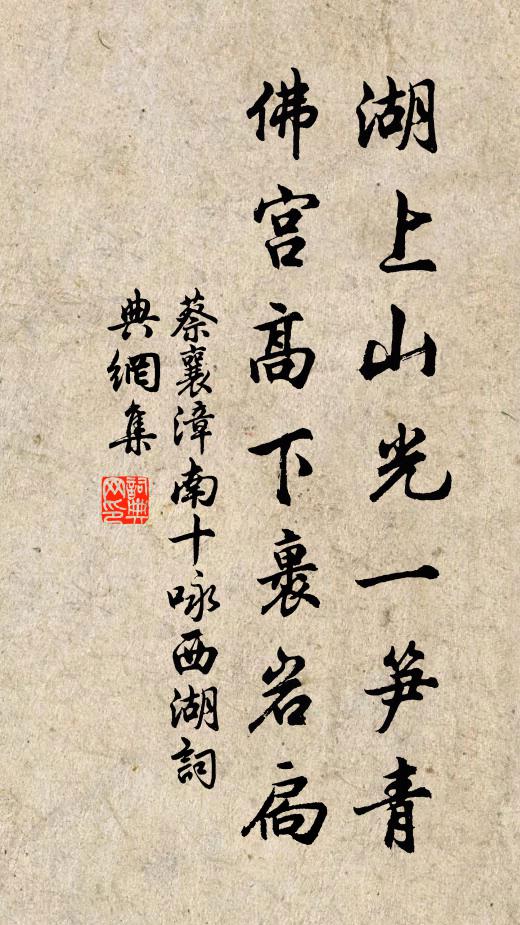 湖上山光一笋青
佛宫高下裹岩扃
蔡襄漳南十咏西湖詞
典網集
詞典網印